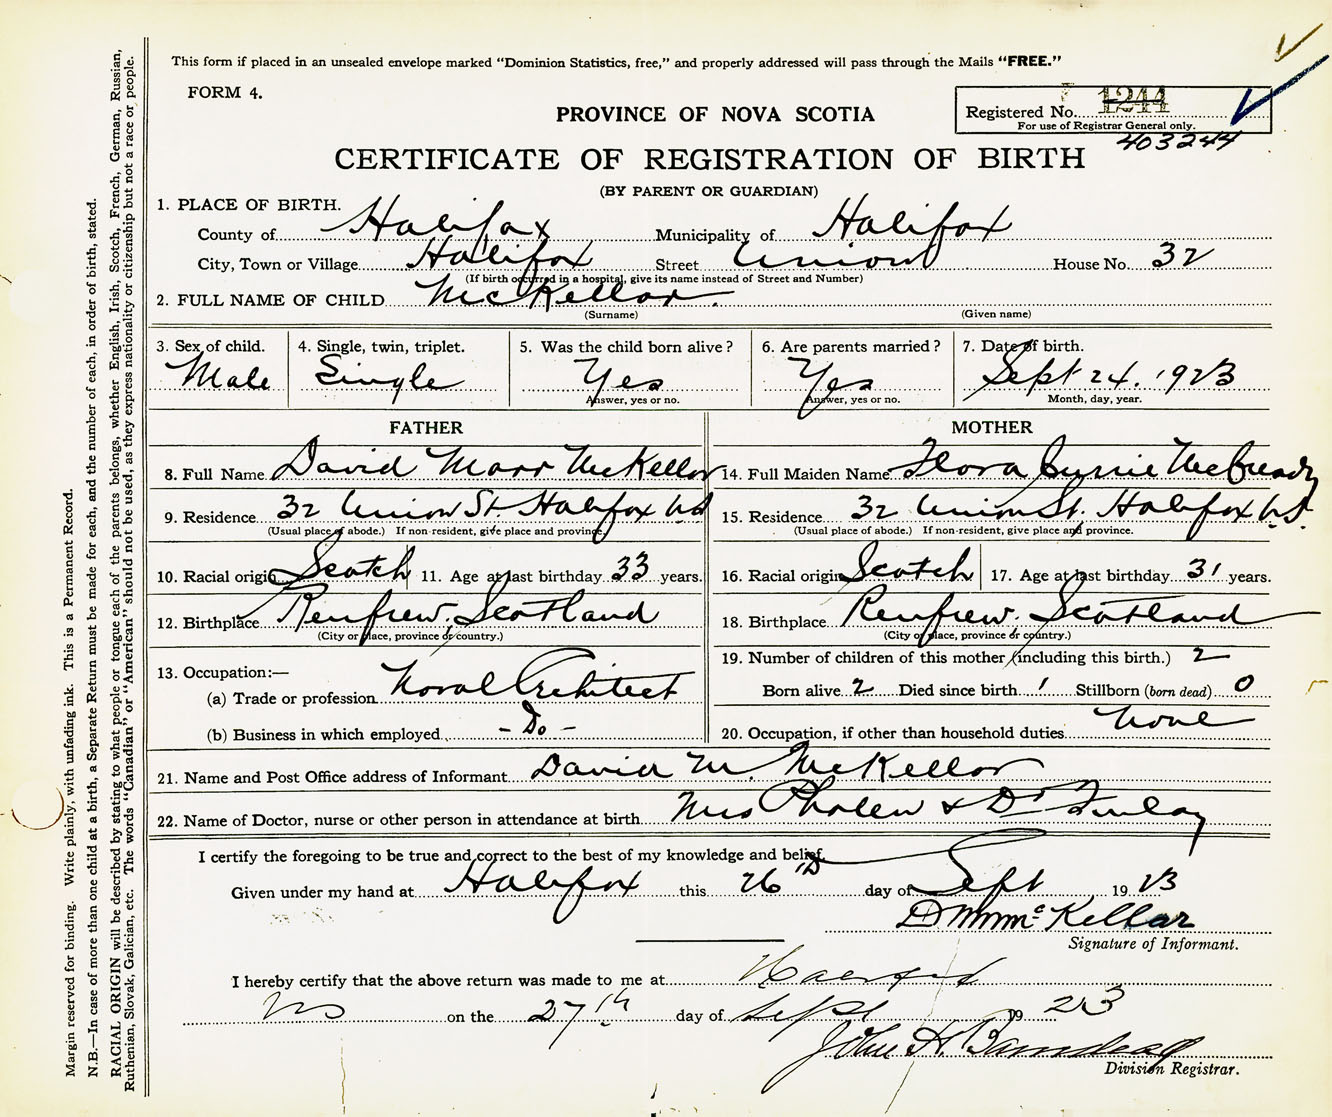 This form if placed in an unsealed envelope marked "Dominion Statistics, free," and properly addressed will pass through the Mails "FREE."
FORM 4.
PROVINCE OF NOVA SCOTIA
Registered No. 1244
For use of Registrar General only.
403244
CERTIFICATE OF REGISTRATION OF BIRTH
(BY PARENT OR GUARDIAN)
1. PLACE OF BIRTH.
County of Halifax Municipality of Halifax
City, Town or Village Halifax Street Union House No. 32
(If birth occurred in a hospital, give its name instead of Street and Number)
2. FULL NAME OF CHILD McKellar.
(Surname) (Given name)
3. Sex of child. Male
4. Single, twin, triplet. Single
5. Was the child born alive? Yes
Answer, yes or no.
6. Are parents married? Yes
Answer, yes or no.
7. Date of birth. Sept 24. 1923
Month, day, year.
FATHER
8. Full Name David Marr McKellar
9. Residence 32 Union St Halifax NS
(Usual place of abode.) If non-resident, give place and province.
10. Racial origin Scotch 11. Age at last birthday 33 years.
12. Birthplace Renfrew. Scotland
(City or place, province or country.)
13. Occupation:—
(a) Trade or profession Naval Architect
(b) Business in which employed - Do -
MOTHER
14. Full Maiden Name Flora Currie McCready
15. Residence 32 Union St. Halifax N.S.
(Usual place of abode.) If non-resident, give place and province.
16. Racial origin Scotch 17. Age at last birthday 31 years.
18. Birthplace Renfrew. Scotland
(City or place, province or country.)
19. Number of children of this mother (including this birth.) 2
Born alive 2 Died since birth 1 Stillborn (born dead) 0
20. Occupation, if other than household duties None
21. Name and Post Office address of Informant David M. McKellar
22. Name of Doctor, nurse or other person in attendance at birth Mrs & Dr Finlay
I certify the foregoing to be true and correct to the best of my knowledge and belief.
Given under my hand at Halifax this 26th day of Sept 1923
D M McKellar
Signature of Informant.
I hereby certify that the above return was made to me at Halifax
NS on the 27th day of Sept 1923
John H.
Division Registrar.
Margin reserved for binding. Write plainly, with unfading ink. This is a Permanent Record.
N.B.—In case of more than one child at a birth, a Separate Return must be made for each, and the number of each, in order of birth, stated.
RACIAL ORIGIN will be described by stating to what people or tongue each of the parents belongs, whether English, Irish, Scotch, French, German, Russian,
Ruthenian, Slovak, Galician, etc. The words "Canadian" or "American" should not be used, as they express nationality or citizenship but not a race or people.